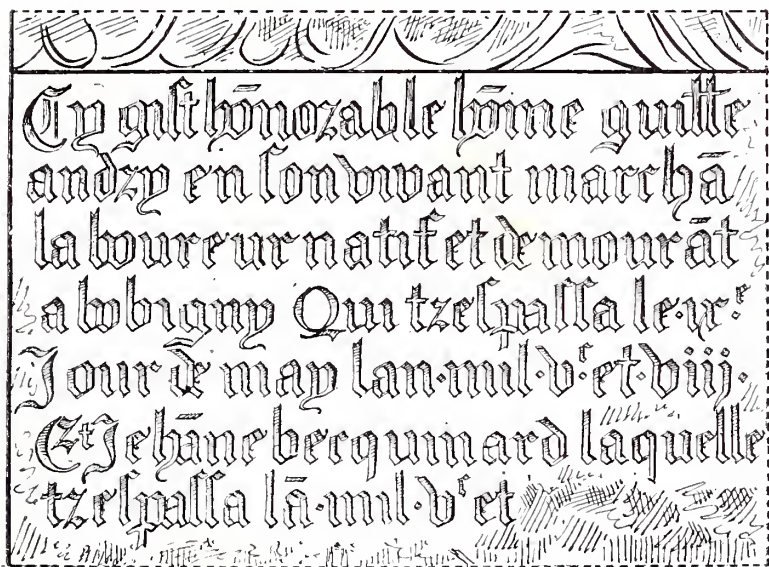 Cy gist hōnorable hōme guille
andry en son vivant marchā
laboureur natif et demourāt
a bobigny Qui trespassa le·ix·e
Jour de may lan·mil·vc·et·viij·
Et Jehāne becquinard laquelle
trespassa lā·mil·vc et